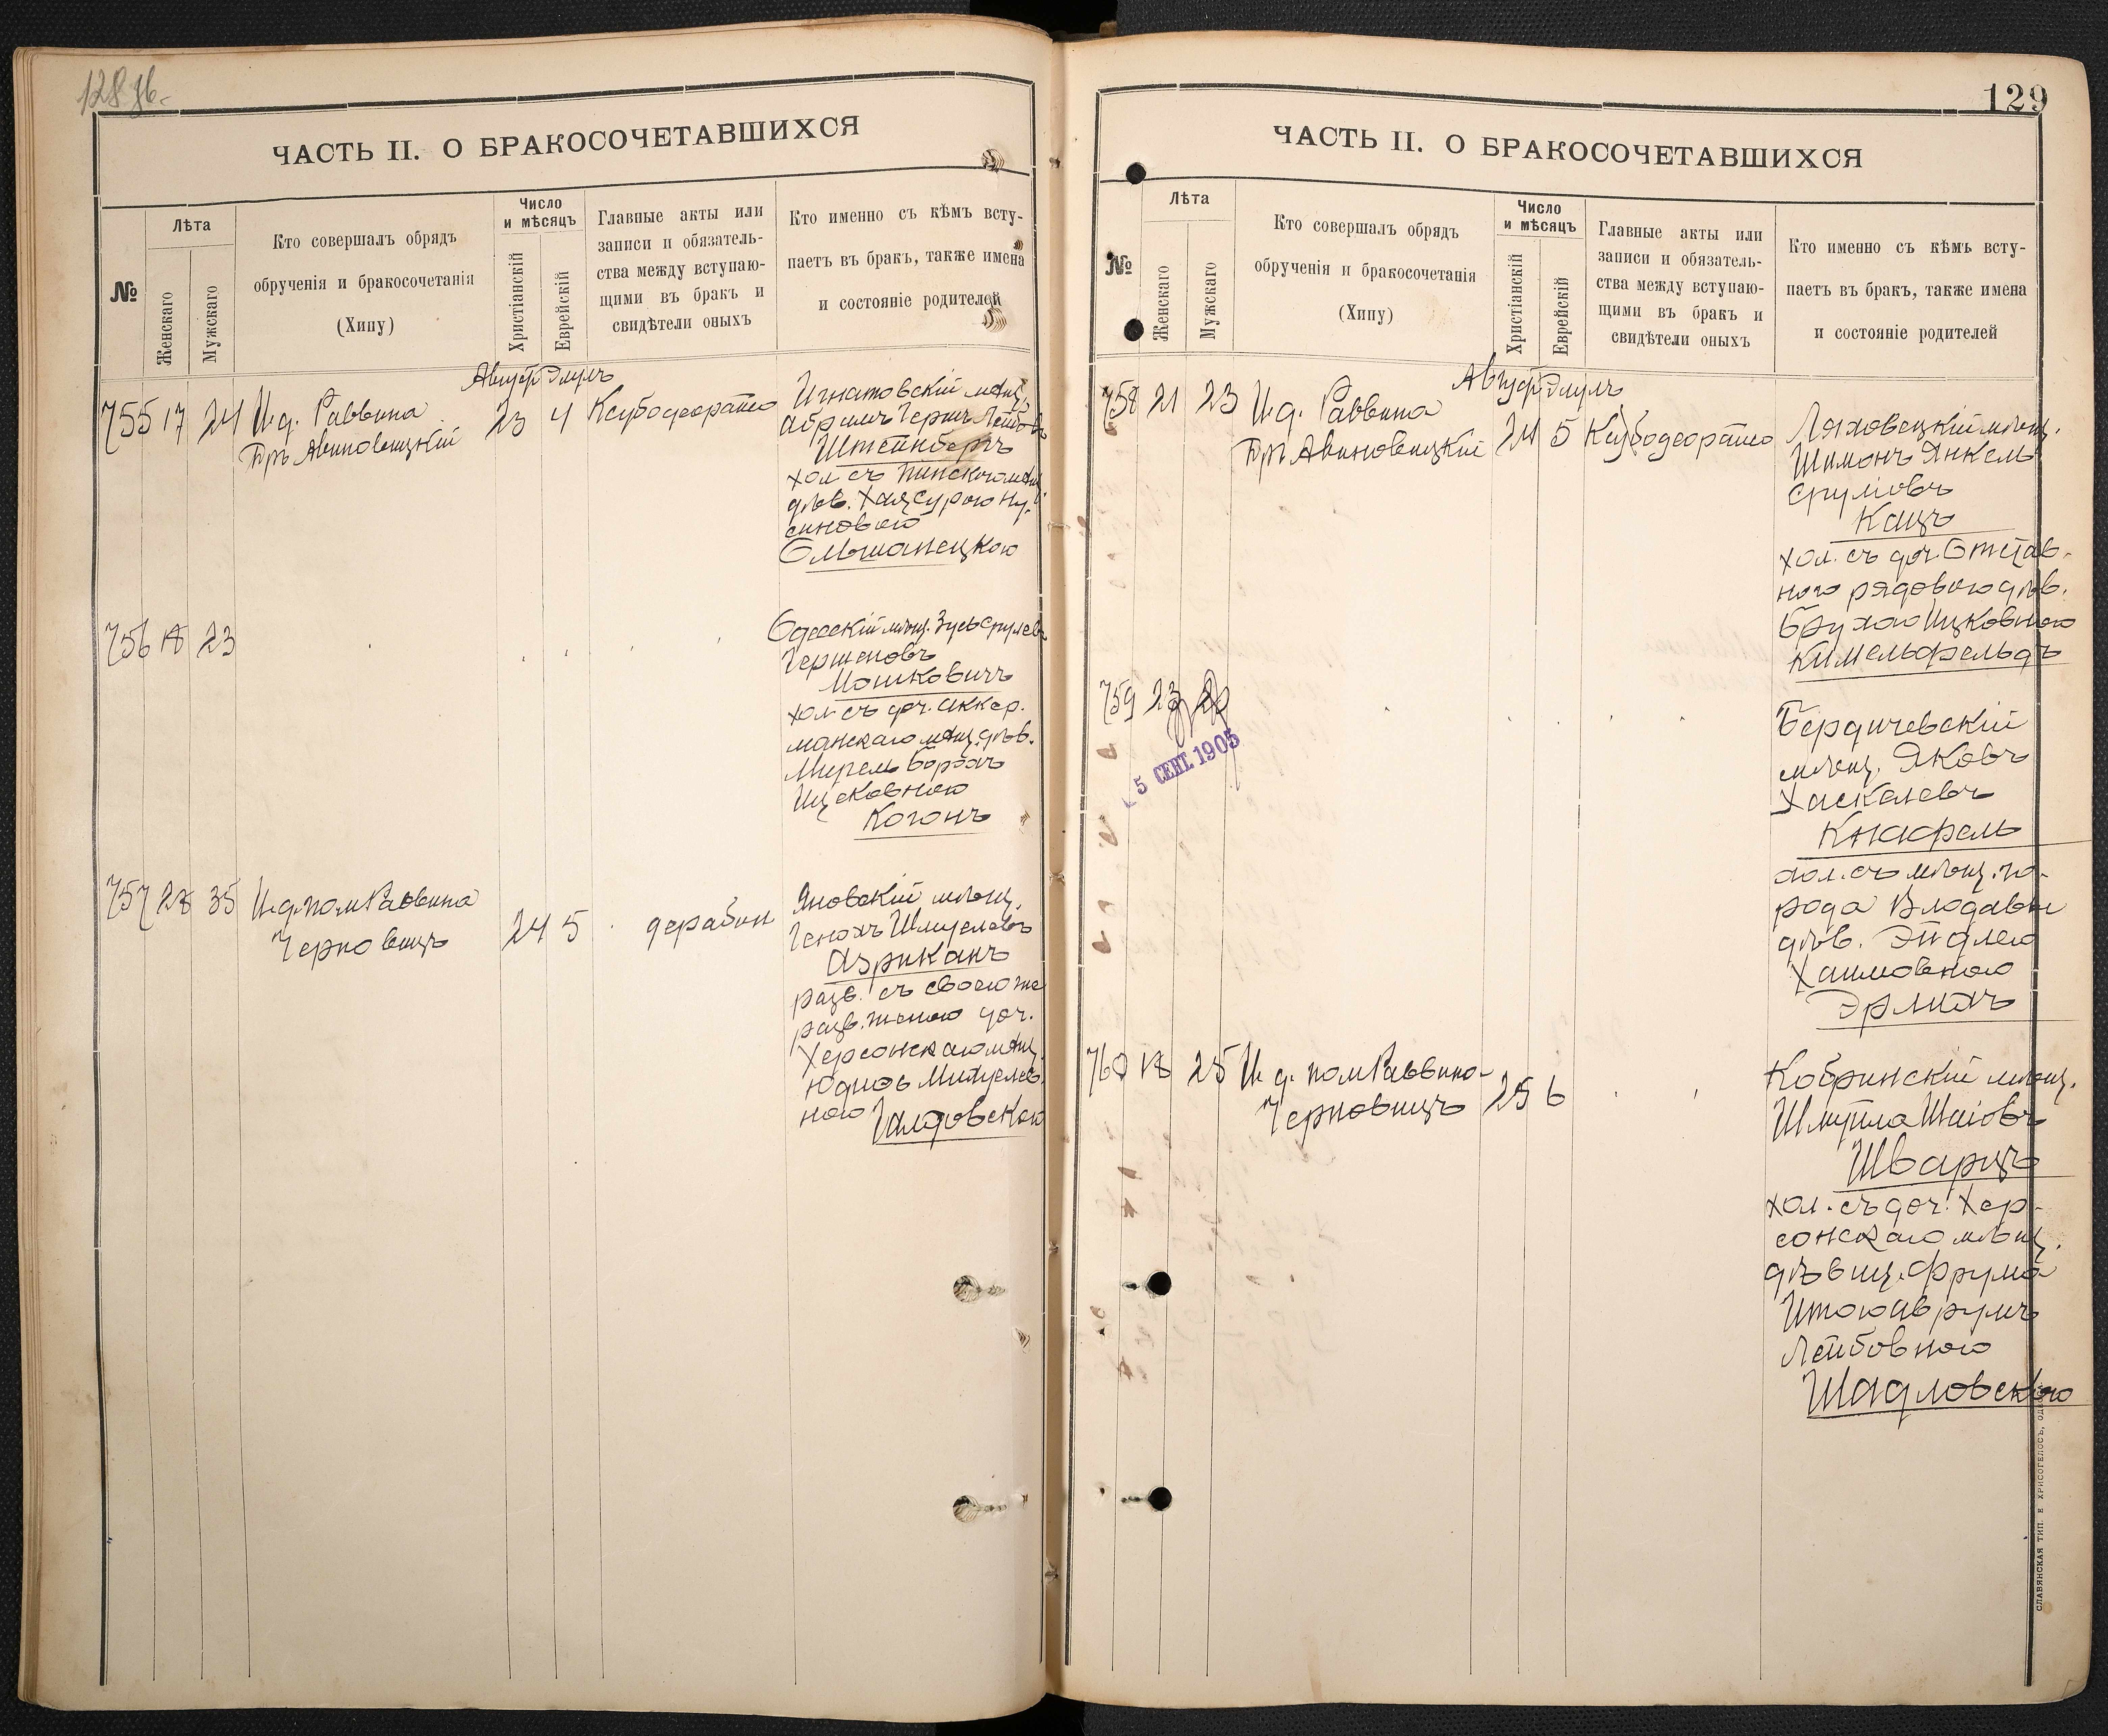 128 об.
ЧАСТЬ II. О БРАКОСОЧЕТАВШИХСЯ
№
Лѣта
Женскаго
Мужскаго
Кто совершалъ обрядъ
обрученія и бракосочетанія
(Хипу)
Число
и мѣсяцъ
Христіанскій
Еврейскій
Главные акты или
записи и обязатель-
ства между вступаю-
щими въ бракъ и
свидѣтели оныхъ
Кто именно съ кѣмъ всту-
паетъ въ бракъ, также имена
и состояніе родителей
Август Элулъ
755 17 24 И.д. Раввина
Авиновицкій
23 4
Игнатовскій мѣщ.
Абрамъ Гершъ Лейбовъ
Штейнбергъ
хол съ Пинскою мѣщ.
дѣв. Хая Сурою Ну-
синовою
Ольшанецкою
756 18 23
Одесскій мѣщ. Зусь Срулевъ
Гершковъ
Мошковичъ
хол съ доч. Аккер-
манскаго мѣщ. дѣв.
Мирель
Ицковною
Когонъ
757 28 35 И.д. пом Раввина
Черновицъ
24 5 дерабон
Яновскій мѣщ.
Генохъ Шмулевъ
Азриканъ
разв. съ своею же
разв. женою доч.
Херсонскаго мѣщ.
ною
129
ЧАСТЬ II. О БРАКОСОЧЕТАВШИХСЯ
№
Лѣта
Женскаго
Мужскаго
Кто совершалъ обрядъ
обрученія и бракосочетанія
(Хипу)
Число
и мѣсяцъ
Христіанскій
Еврейскій
Главные акты или
записи и обязатель-
ства между вступаю-
щими въ бракъ и
свидѣтели оныхъ
Кто именно съ кѣмъ всту-
паетъ въ бракъ, также имена
и состояніе родителей
Август Элулъ
758 21 23 И.д. Раввина
Авиновицкій
24 5
Ляховецкій мѣщ.
Шимонъ Янкель
Сруліовъ
Кацъ
хол. съ доч. Отстав-
ного рядового дѣв.
Брухою Ицковною
Кимельфельдъ
759 23
5 СЕНТ. 1905
Бердичевскій
мѣщ. Яковъ
Хаскелевъ
Кнафель
хол. съ мѣщ. го-
рода Влодавы
дѣв. Эйдлею
Хаимовною
Эрлихъ
760 18 25 И.д. пом Раввина
Черновицъ
25 6
Кобринскій мѣщ.
Шмуйла Шаіовъ
Шварцъ
хол. съ доч. Хер-
сонскаго мѣщ.
дѣвиц. Фрума
Итою Аврумъ
Лейбовною
Шадловскою
СЛАВЯНСКАЯ ТИП. Е. ХРИСОГЕЛОСЪ, ОДЕССА